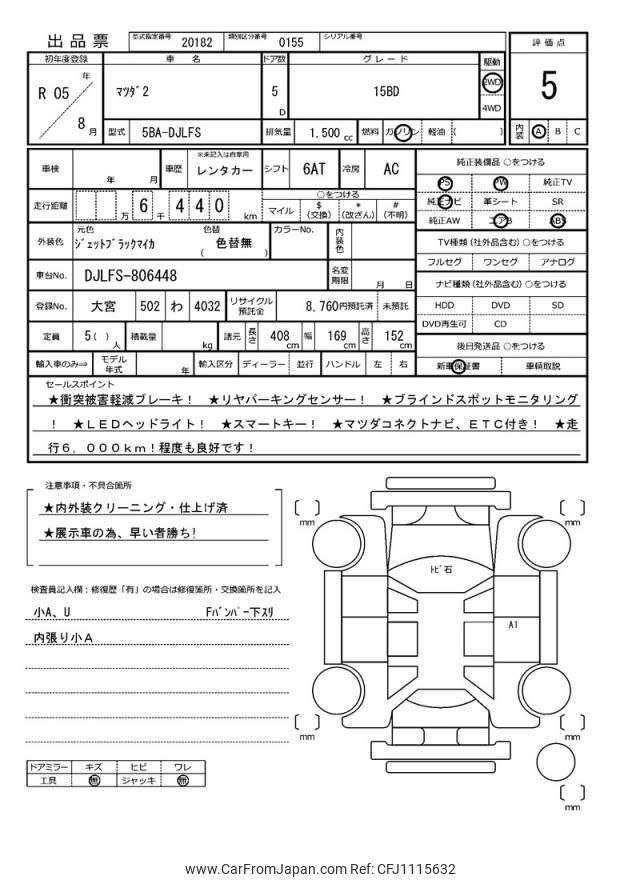 出品票 型式指定番号 20182 類別区分番号 0155 シリアル番号
評価点
5
内装 A B C
初年度登録 車名 ドア数 グレード 駆動
R 05 年 8 月 マツダ2 5 D 15BD 2WD 4WD
型式 5BA-DJLFS 排気量 1.500 cc 燃料 ガソリン 軽油 ( )
車検 年 月 車歴 ※未記入は自家用 レンタカー シフト 6AT 冷房 AC
走行距離 万 6 千 4 4 0 km ○をつける
マイル $(交換) *(改ざん) #(不明)
外装色 元色 ジェットブラックマイカ 色替 色替無 ( ) カラーNo. 内装色
車台No. DJLFS-806448 名変期限 月 日
登録No. 大宮 502 わ 4032 リサイクル預託金 8,760円預託済 未預託
定員 5 ( ) 人 積載量 kg 諸元 長さ 408 cm 幅 169 cm 高さ 152 cm
輸入車のみ⇒ モデル年式 年 輸入区分 ディーラー 並行 ハンドル 左 右
純正装備品 ○をつける
PS PW 純正TV
純正ナビ 革シート SR
純正AW エアB ABS
TV種類 (社外品含む) ○をつける
フルセグ ワンセグ アナログ
ナビ種類 (社外品含む) ○をつける
HDD DVD SD
DVD再生可 CD
後日発送品 ○をつける
新車保証書 車輌取説
セールスポイント
★衝突被害軽減ブレーキ! ★リヤパーキングセンサー! ★ブラインドスポットモニタリング
! ★LEDヘッドライト! ★スマートキー! ★マツダコネクトナビ、ETC付き! ★走
行6,000km!程度も良好です!
注意事項・不具合箇所
★内外装クリーニング・仕上げ済
★展示車の為、早い者勝ち!
検査員記入欄:修復歴「有」の場合は修復箇所・交換箇所を記入
小A、U Fバンパー下スリ
内張り小A
mm
mm
トビ石
A1
mm
mm
mm
ドアミラー キズ ヒビ ワレ
工具 無 ジャッキ 無
www.CarFromJapan.com Ref: CFJ1115632